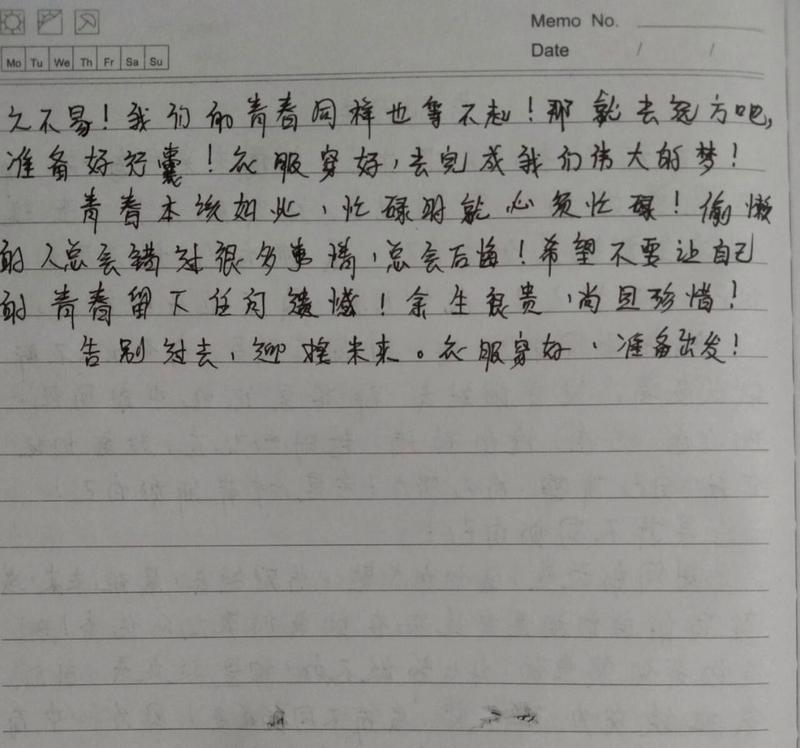 Memo No.
Date / /
Mo Tu We Th Fr Sa Su
久不易！我们的青春同样也等不起！那就去远方吧，
准备好行囊！衣服穿好，去完成我们伟大的梦！
青春本该如此，忙碌时就必须忙碌！偷懒
的人总会错过很多事情，总会后悔！希望不要让自己
的青春留下任何遗憾！余生很贵，尚且珍惜！
告别过去，迎接未来。衣服穿好，准备出发！